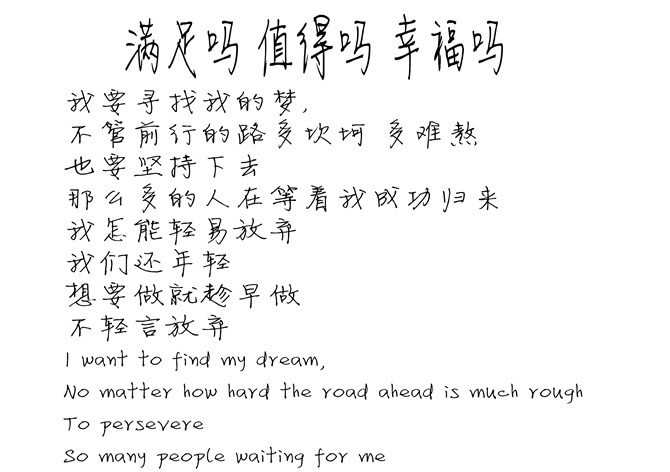 满足吗 值得吗 幸福吗
我要寻找我的梦,
不管前行的路多坎坷 多难熬
也要坚持下去
那么多的人在等着我成功归来
我怎能轻易放弃
我们还年轻
想要做就趁早做
不轻言放弃
I want to find my dream,
No matter how hard the road ahead is much rough
To persevere
So many people waiting for me